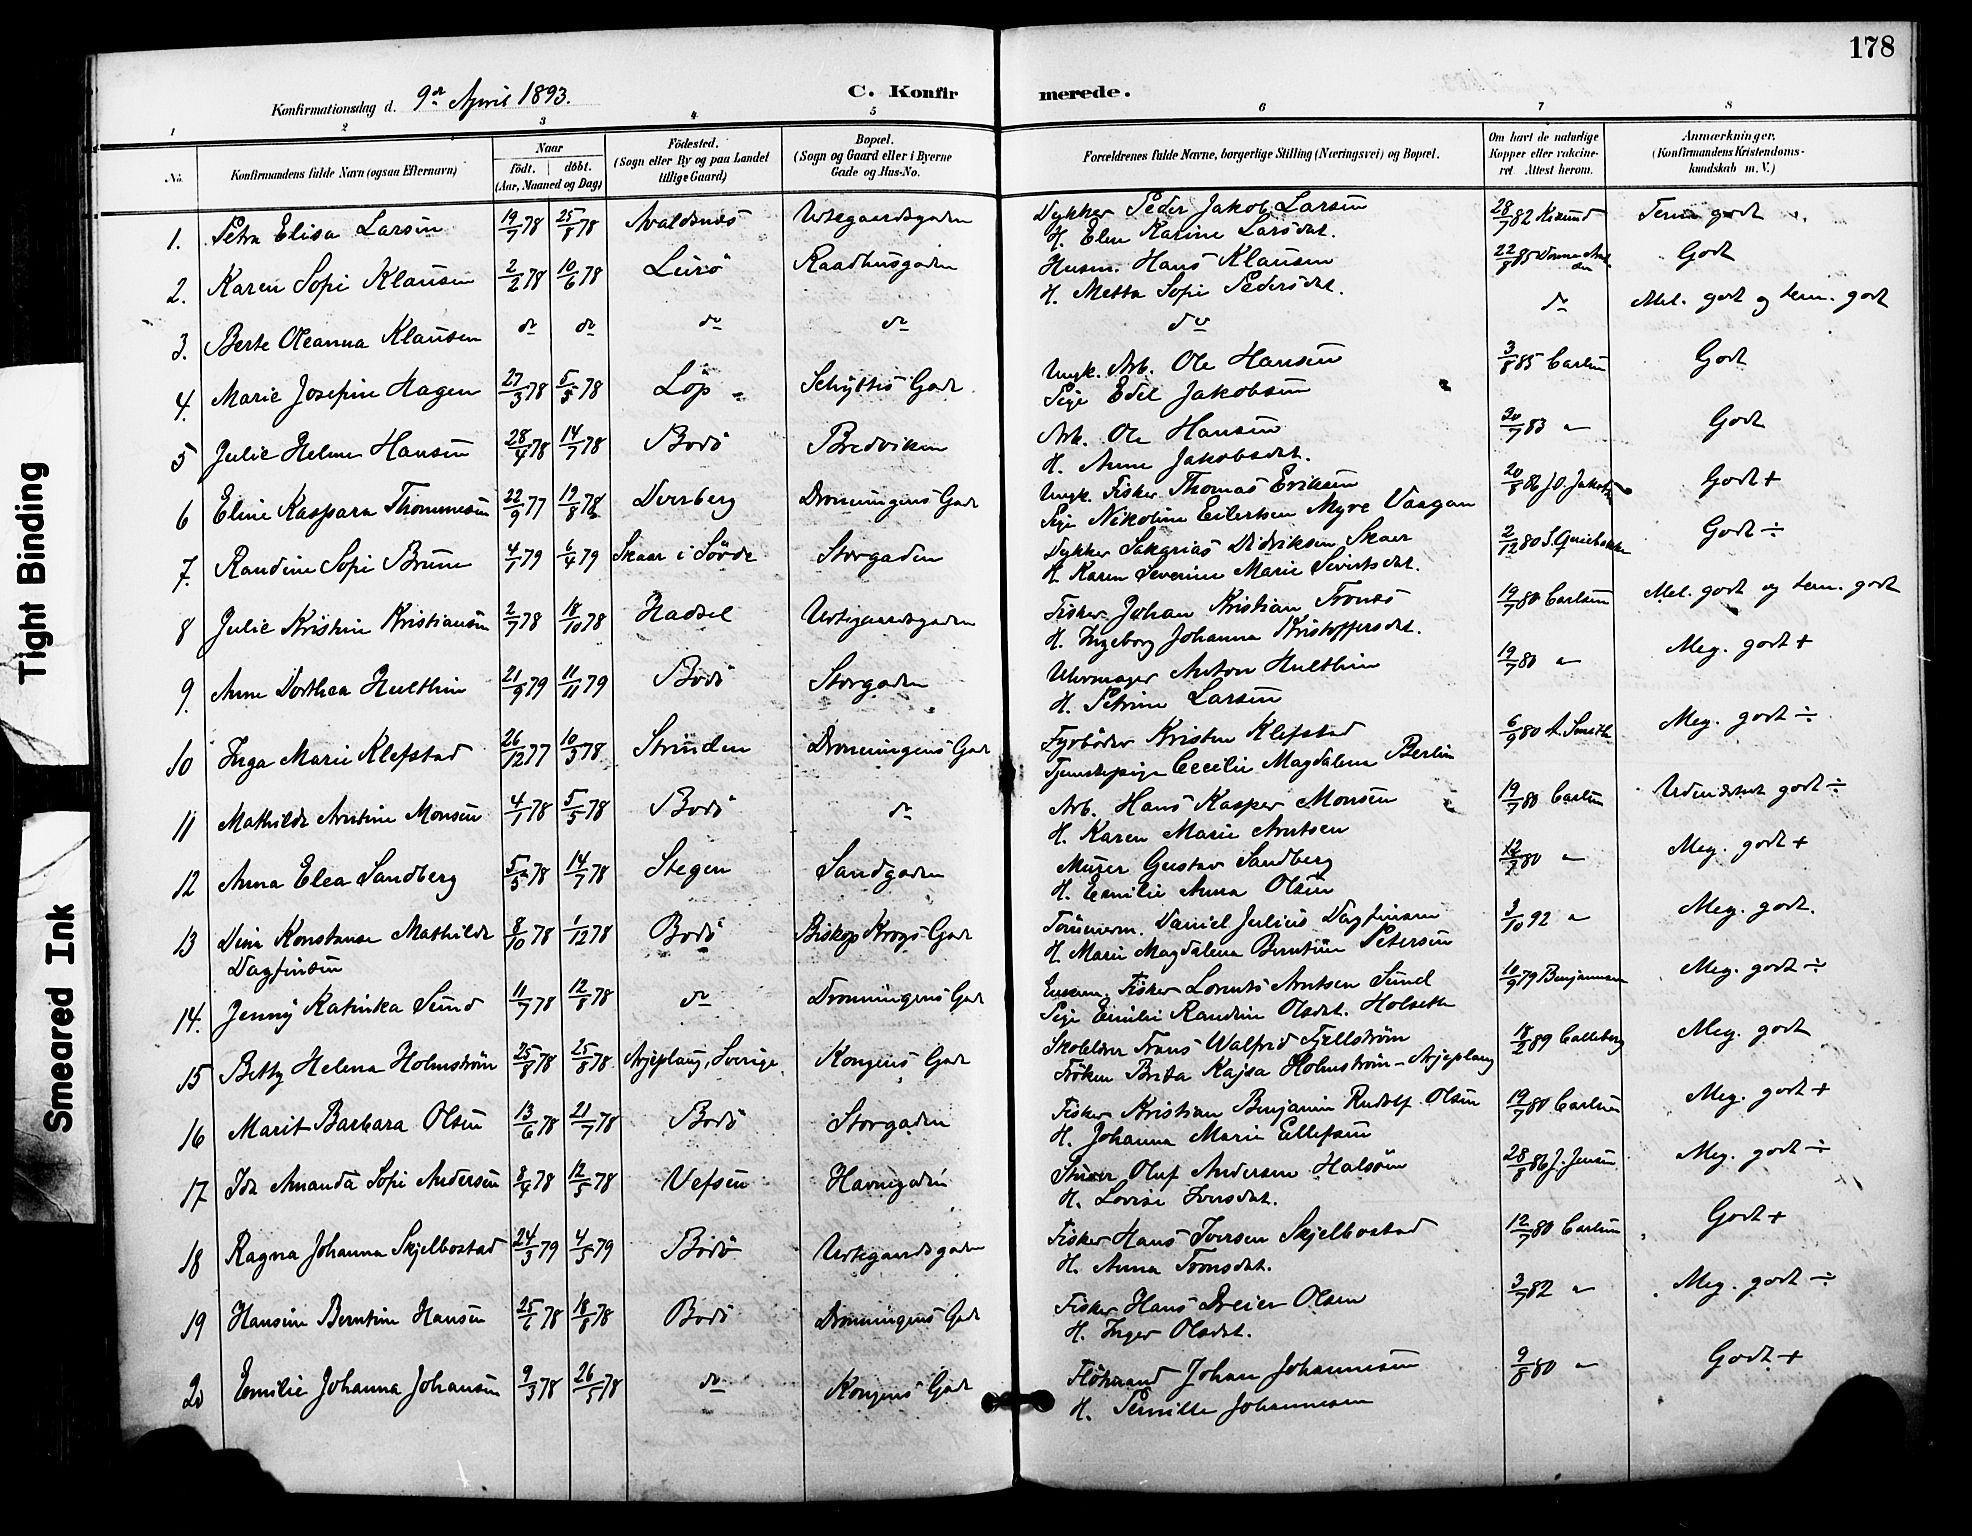 178
Konfirmationsdag d. 9de April 1893.
C. Konfirmerede.
1 2 3 4 5 6 7 8
No.
Konfirmandens fulde Navn (ogsaa Efternavn)
Naar
født. døbt.
(Aar, Maaned og Dag)
Fødested.
(Sogn eller By og paa Landet
tillige Gaard)
Bopæl.
(Sogn og Gaard eller i Byerne
Gade og Hus-No.
Forældrenes fulde Navne, borgerlige Stilling (Næringsvei) og Bopæl.
Om havt de naturlige
Kopper eller vakcine-
ret Attest herom.
Anmærkninger.
(Konfirmandens Kristendoms-
kundskab m. V.)
1. Petra Elisa Larsen 19/7 78 25/8 78 Avaldsnæs Urtegaardsgaden Dykker Peder Jakob Larsen 28/7 82 Temm. godt
H. Elen Karine Larsdat.
2. Karen Sofie Klausen 2/2 78 10/6 78 Lurö Raadhusgaden Husm. Hans Klausen 22/8 85 Godt
H. Metta Sofie Pedersdat.
3. Berte Oleanna Klausen do do do do do do Mel. godt og tem. godt
4. Marie Josefine Hagen 27/3 78 5/5 78 Löp Schyttes Gade Ungk. Arb. Ole Hansen 3/8 85 Carlsen Godt
Pige Edel Jakobsen
5 Julie Helene Hansen 28/4 78 14/7 78 Bodö Bredviken Arb. Ole Hansen 20/7 83 " Godt
H. Anne Jakobsdat.
6 Eline Kaspara Thommesen 22/9 77 19/8 78 Dverberg Dronningens Gade Ungk. Fisker Thomas Eriksen 20/8 86 J.O. Jakobsen Godt +
Pige Nikoline Eilertsen Myre Vaagan
7. Randine Sofie Brune 4/1 79 6/4 79 Skaar i Sövde Storgaden Dykker Sakarias Didriksen Skaar 2/12 80 Godt ÷
H. Karen Severine Marie Sivertsdat.
8 Julie Kristine Kristiansen 2/7 78 18/10 78 Hadsel Urtegaardsgaden Fisker Johan Kristian Tronæs 19/7 80 Carlsen Mel. godt og tem. godt
H. Ingeborg Johanna Kristoffersdat.
9. Anne Dorthea Hulthin 21/9 79 11/11 79 Bodö Storgaden Uhrmager Anton Hulthin 19/7 80 " Meg. godt +
H. Petrine Larsen
10 Inga Marie Klefstad 26/12 77 10/3 78 Strinden Dronningens Gade Fyrböder Kristen Klefstad 6/9 80 A. Smith Meg. godt ÷
Tjenestepige Cecilie Magdalena Berlin
11 Mathilde Arntine Monsen 4/1 78 5/5 78 Bodö do Arb. Hans Kasper Monsen 19/7 80 Carlsen Udmærket godt ÷
H. Karen Marie Arntsen
12 Anna Elea Sandberg 5/5 78 14/7 78 Stegen Sandgaden Murer Gustav Sandberg 12/7 80 " Meg. godt +
H. Emilie Anna Olsen
13 Dina Konstanse Mathilde 8/10 78 1/12 78 Bodö Biskop Krogs Gade Tömmerm. Daniel Julius Dagfinsen 3/10 92 " Meg. godt.
Dagfinsen H. Marie Magdalena Berntine Petersen
14. Jenny Katinka Sund 11/7 78 12/8 78 do Dronningens Gade Enkem. Fisker Lorents Arntsen Sund 10/9 79 Benjaminsen Meg. godt ÷
Pige Emilie Randine Olsdat. Holseth
15 Betty Helena Holmström 25/8 78 25/8 78 Arjeplaug, Sverige Kongens Gade Skolelærer Frans Walfrid Fjellström 18/2 89 Calleberg Meg. godt
Fröken Brita Kajsa Holmström - Arjeplaug
16 Marit Barbara Olsen 13/6 78 21/7 78 Bodö Storgaden Fisker Kristian Benjamin Rudolf Olsen 19/7 80 Carlsen Meg. godt +
H. Johanna Marie Ellefsen
17 Ida Amanda Sofie Andersen 8/4 78 12/5 78 Vefsen Havnegaden Stuer Oluf Andersen Halsöen 28/8 86 J. Jensen Meg. godt ÷
H. Lovise Iversdat.
18 Ragna Johanna Skjelbostad 24/3 79 4/5 79 Bodö Urtegaardsgaden Fisker Hans Iversen Skjelbostad 12/7 80 Carlsen Godt +
H. Anna Tronsdat.
19 Hansine Berntine Hansen 25/6 78 18/8 78 Bodö Dronningens Gade Fisker Hans Dreier Olsen 3/7 82 " Meg. godt ÷
H. Inger Olsdat.
20 Emilie Johanna Johansen 9/3 78 26/5 78 do Kongens Gade Flötmand Johan Johannesen 9/8 80 " Godt +
H. Pernille Johannesen
Tight Binding
Smeared Ink